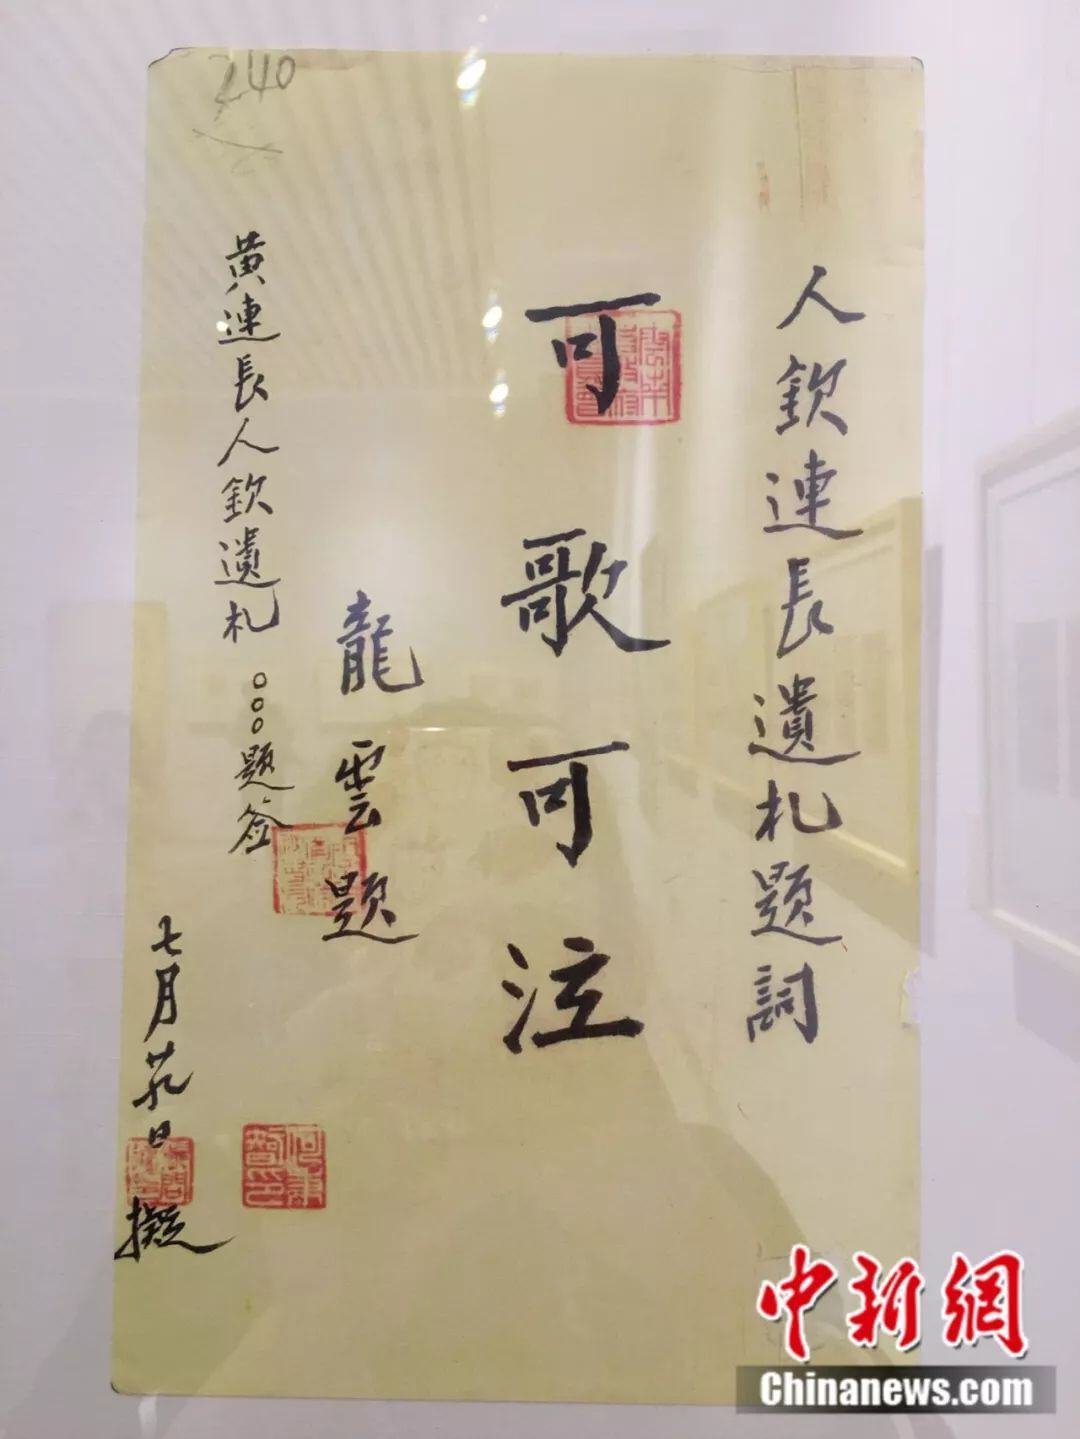 240
人欽連長遺札題詞
可歌可泣
龍雲題
黄連長人欽遺札 ○○○题签
七月廿九日擬
中新網
Chinanews.com